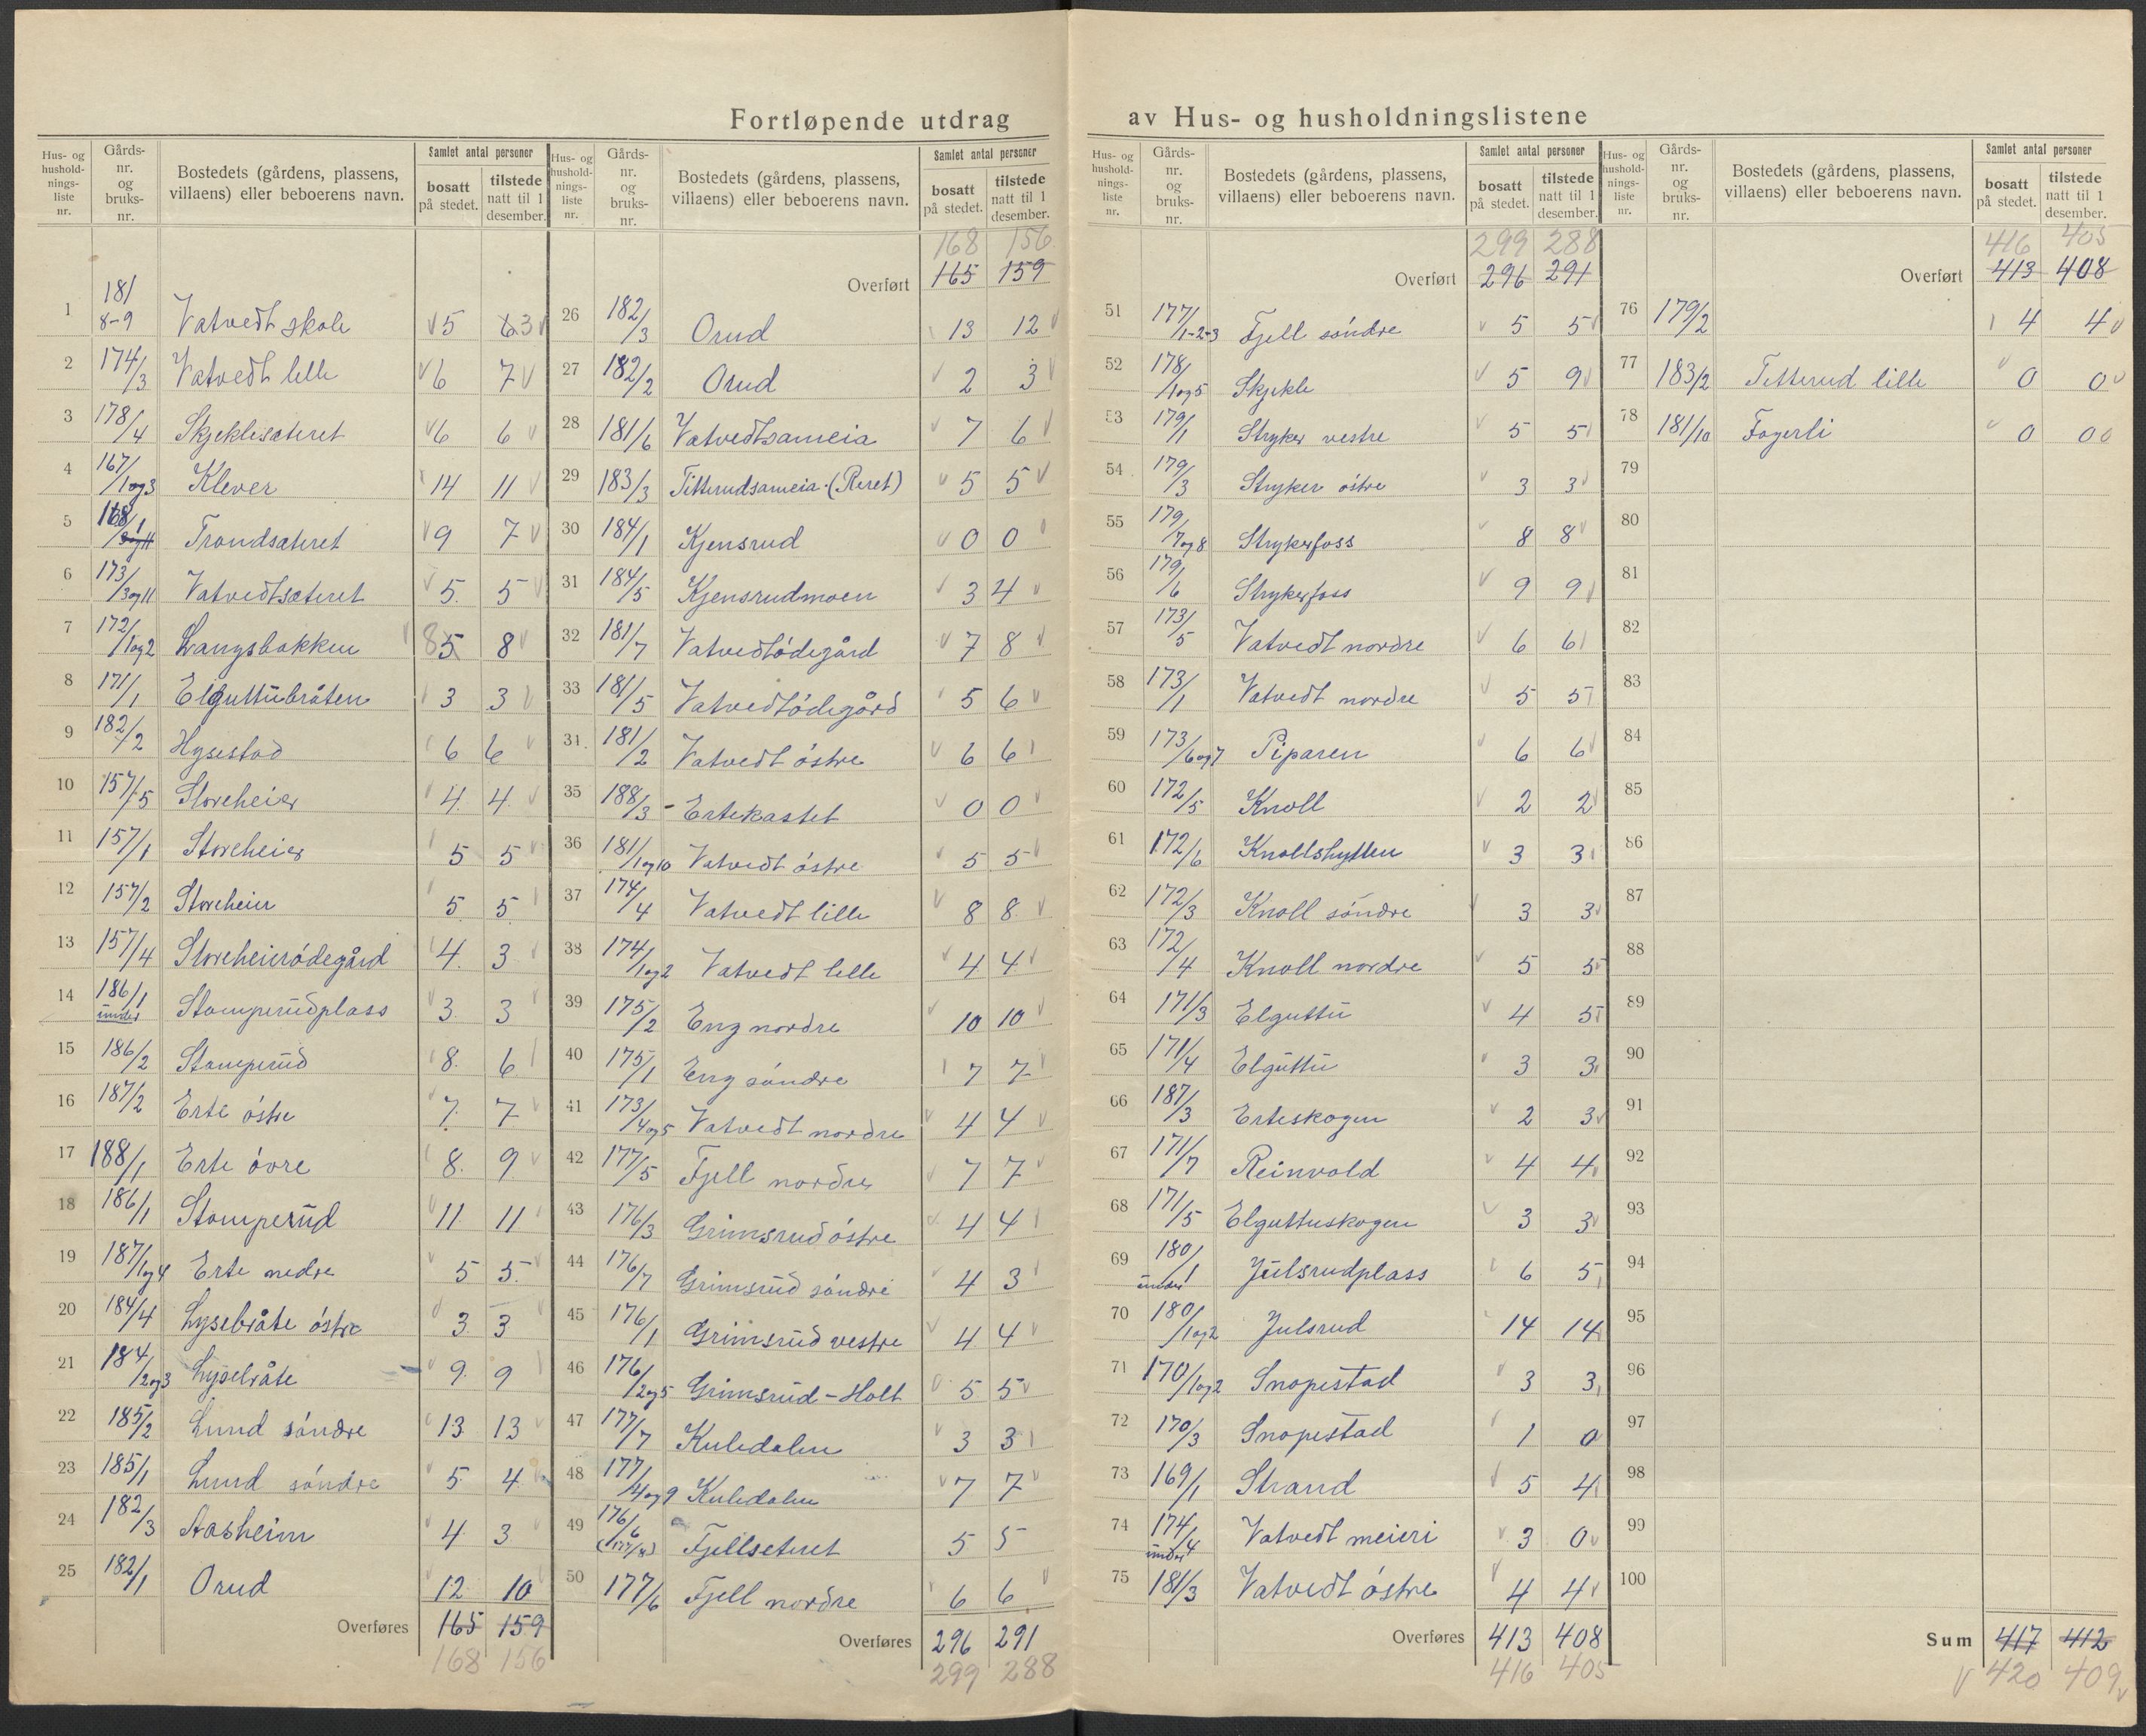 Fortløpende utdrag av Hus- og husholdningslistene
Hus- og hushold-nings-liste nr. Gårds-nr. og bruks-nr. Bostedets (gårdens, plassens, villaens) eller beboerens navn. Samlet antal personer bosatt på stedet. tilstede natt til 1 desember.
1 181/8-9 Vatvedt skole 5 6 3
2 174/3 Vatvedt lille 6 7
3 178/4 Skjeklisæteret 6 6
4 167/1og3 Klever 14 11
5 168/1 Trondsæteret 9 7
6 173/3og11 Vatvedtsæteret 5 5
7 172/1og2 Langsbakken 8 5 8
8 171/1 Elguttubråten 3 3
9 182/2 Hysestad 6 6
10 157/5 Storeheier 4 4
11 157/1 Storeheier 5 5
12 157/2 Storeheier 5 5
13 157/4 Storeheierødegård 4 3
14 186/1 under Stomperudplass 3 3
15 186/2 Stomperud 8 6
16 187/2 Erte østre 7 7
17 188/1 Erte øvre 8 9
18 186/1 Stomperud 11 11
19 187/1og4 Erte nedre 5 5
20 184/4 Lysebråte østre 3 3
21 184/2og3 Lysebråte 9 9
22 185/2 Lund søndre 13 13
23 185/1 Lund søndre 5 4
24 182/3 Aasheim 4 3
25 182/1 Orud 12 10
Overføres 165 159
168 156
Hus- og hushold-nings-liste nr. Gårds-nr. og bruks-nr. Bostedets (gårdens, plassens, villaens) eller beboerens navn. Samlet antal personer bosatt på stedet. tilstede natt til 1 desember.
168 156
Overført 165 159
26 182/3 Orud 13 12
27 182/2 Orud 2 3
28 181/6 Vatvedtsameia 7 6
29 183/3 Titterudsameia (Røret) 5 5
30 184/1 Kjensrud 0 0
31 184/5 Kjensrudmoen 3 4
32 181/7 Vatvedtødegård 7 8
33 181/5 Vatvedtødegård 5 6
34 181/2 Vatvedt østre 6 6
35 188/3 - Ertekastet 0 0
36 181/1og10 Vatvedt østre 5 5
37 174/4 Vatvedt lille 8 8
38 174/1og2 Vatvedt lille 4 4
39 175/2 Eng nordre 10 10
40 175/1 Eng søndre 7 7
41 173/4og5 Vatvedt nordre 4 4
42 177/5 Fjell nordre 7 7
43 176/3 Grimsrud østre 4 4
44 176/7 Grimsrud søndre 4 3
45 176/1 Grimsrud vestre 4 4
46 176/2og5 Grimsrud-Holt 5 5
47 177/7 Kuledalen 3 3
48 177/4og9 Kuledalen 7 7
49 176/6 (177/8) Fjellseteret 5 5
50 177/6 Fjell nordre 6 6
Overføres 296 291
299 288
Hus- og hushold-nings-liste nr. Gårds-nr. og bruks-nr. Bostedets (gårdens, plassens, villaens) eller beboerens navn. Samlet antal personer bosatt på stedet. tilstede natt til 1 desember.
299 288
Overført 296 291
51 177/1-2-3 Fjell søndre 5 5
52 178/1og5 Skjekle 5 9
53 179/1 Stryker vestre 5 5
54 179/3 Stryker østre 3 3
55 179/7og8 Strykerfoss 8 8
56 179/6 Strykerfoss 9 9
57 173/5 Vatvedt nordre 6 6
58 173/1 Vatvedt nordre 5 5
59 173/6og7 Piparen 6 6
60 172/5 Knoll 2 2
61 172/6 Knollshytten 3 3
62 172/3 Knoll søndre 3 3
63 172/4 Knoll nordre 5 5
64 171/3 Elguttu 4 5
65 171/4 Elguttu 3 3
66 187/3 Erteskogen 2 3
67 171/7 Reinvold 4 4
68 171/5 Elguttuskogen 3 3
69 180/1 under Julsrudplass 6 5
70 180/1og2 Julsrud 14 14
71 170/1og2 Snopestad 3 3
72 170/3 Snopestad 1 0
73 169/1 Strand 5 4
74 174/4 under Vatvedt meieri 3 0
75 181/3 Vatvedt østre 4 4
Overføres 413 408
416 405
Hus- og hushold-nings-liste nr. Gårds-nr. og bruks-nr. Bostedets (gårdens, plassens, villaens) eller beboerens navn. Samlet antal personer bosatt på stedet. tilstede natt til 1 desember.
416 405
Overført 413 408
76 179/2 4 4
77 183/2 Titterud lille 0 0
78 181/10 Fagerli 0 0
79
80
81
82
83
84
85
86
87
88
89
90
91
92
93
94
95
96
97
98
99
100
Sum 417 412
420 409